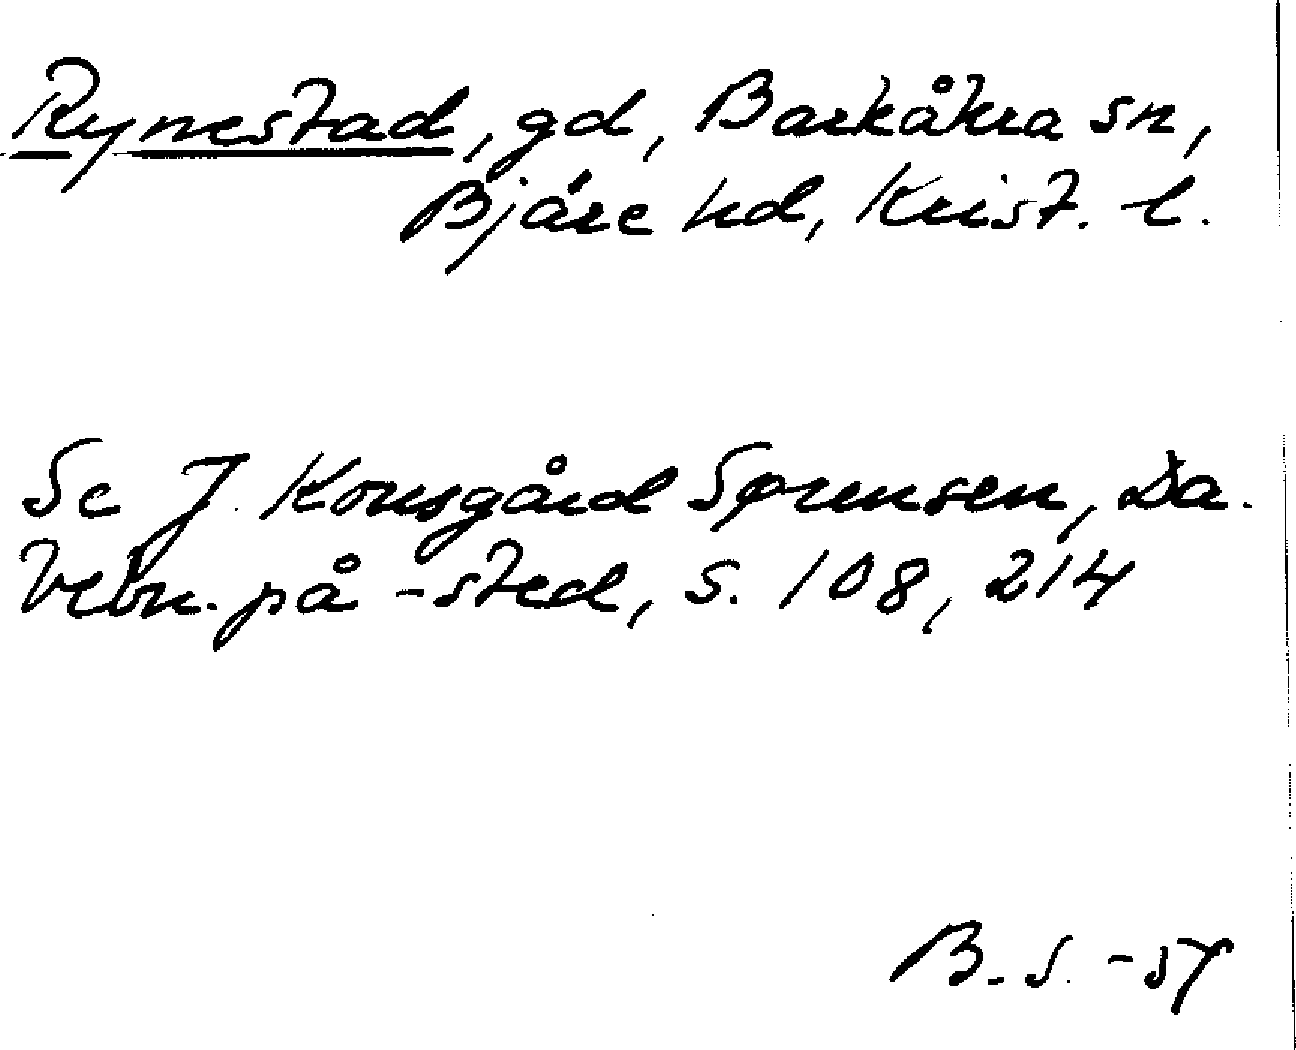 Rynestad, gd, Barkåkra sn,
Bjäre hd, Krist. l.
Se J. Kousgård Sørensen, Da.
Vebn. på -sted, s. 108, 214
B. S. -59